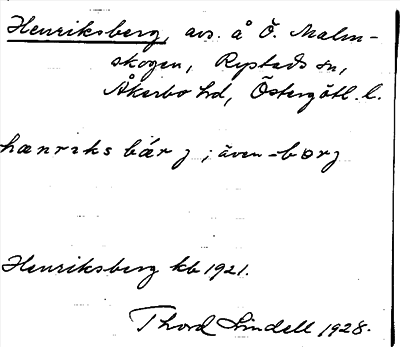 Henriksberg, avs. å Ö. Malm-
skogen, Rystads sn,
Åkerbo hd, Östergötl. l.
hænriks bárj ; även -borj
Henriksberg kb 1921.
Thord Lindell 1928.